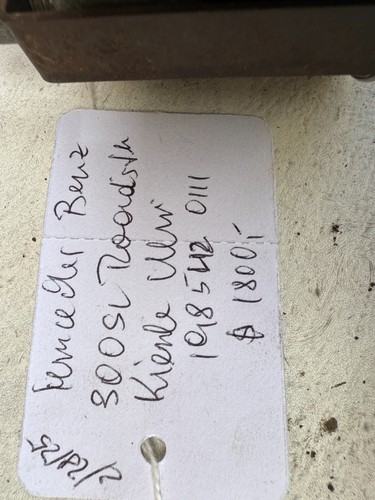 Mercedes Benz
300SL Roadster
Kienle Uhr
198 542 0111
$ 1800,-